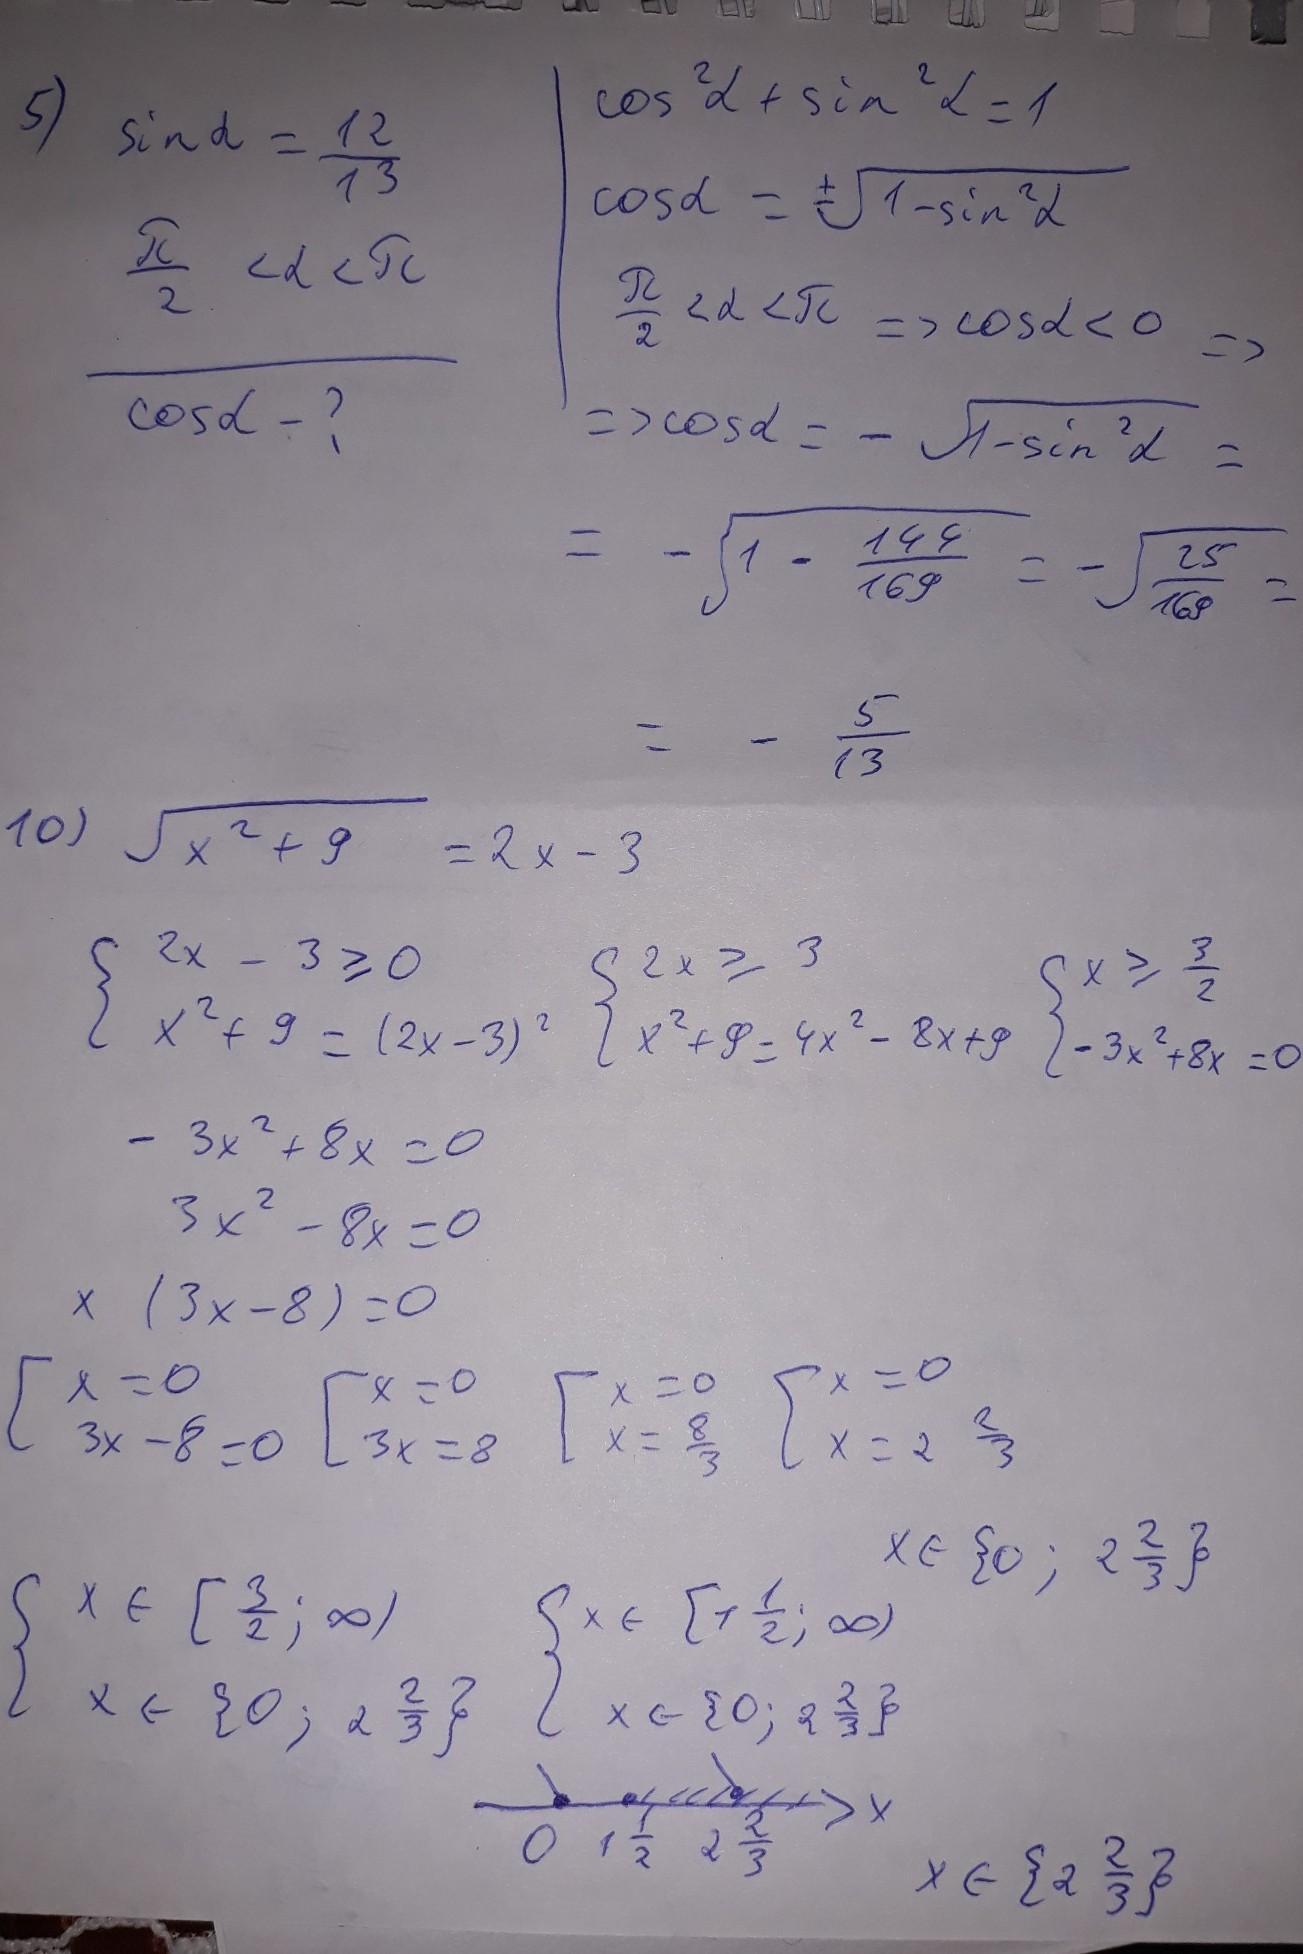 5) sin α = 12/13
π/2 < α < π
cos α - ?
cos²α + sin²α = 1
cos α = ±√(1 - sin²α)
π/2 < α < π => cos α < 0 =>
=> cos α = - √(1 - sin²α) =
= - √(1 - 144/169) = - √(25/169) =
= - 5/13
10) √(x² + 9) = 2x - 3
{ 2x - 3 ≥ 0 { 2x ≥ 3 { x ≥ 3/2
{ x² + 9 = (2x - 3)² { x² + 9 = 4x² - 8x + 9 { - 3x² + 8x = 0
- 3x² + 8x = 0
3x² - 8x = 0
x (3x - 8) = 0
[ x = 0 [ x = 0 [ x = 0 [ x = 0
[ 3x - 8 = 0 [ 3x = 8 [ x = 8/3 [ x = 2 2/3
x ∈ {0; 2 2/3}
{ x ∈ [3/2; ∞) { x ∈ [1 1/2; ∞)
{ x ∈ {0; 2 2/3} { x ∈ {0; 2 2/3}
x
0 1 1/2 2 2/3
x ∈ {2 2/3}